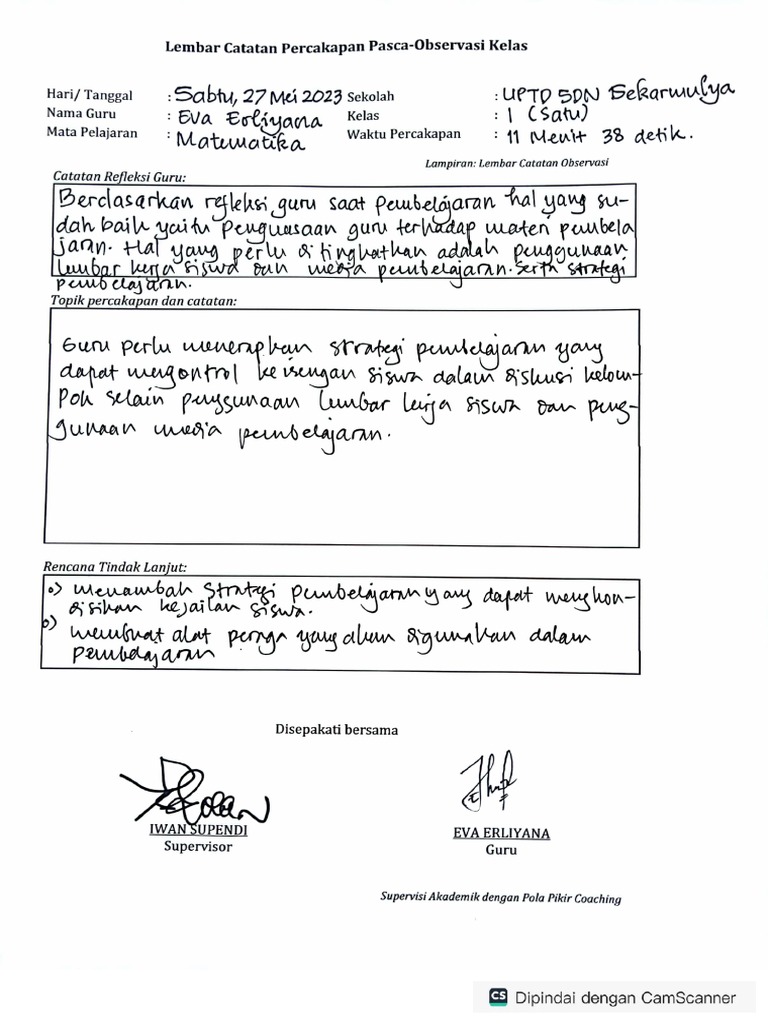 Lembar Catatan Percakapan Pasca-Observasi Kelas
Hari/ Tanggal : Sabtu, 27 Mei 2023 Sekolah : UPTD SDN Sekarmulya
Nama Guru : Eva Erliyana Kelas : 1 (Satu)
Mata Pelajaran : Matematika Waktu Percakapan : 11 Menit 38 detik.
Lampiran: Lembar Catatan Observasi
Catatan Refleksi Guru:
Berdasarkan refleksi guru saat pembelajaran hal yang su-
dah baik yaitu penguasaan guru terhadap materi pembela
jaran. Hal yang perlu ditingkatkan adalah penggunaan
lembar kerja siswa dan media pembelajaran. Serta strategi
pembelajaran.
Topik percakapan dan catatan:
Guru perlu menerapkan strategi pembelajaran yang
dapat mengontrol keisengan siswa dalam diskusi kelom-
pok selain penggunaan lembar kerja siswa dan peng-
gunaan media pembelajaran.
Rencana Tindak Lanjut:
o) menambah strategi pembelajaran yang dapat mengkon-
disikan kejailan siswa.
o) membuat alat peraga yang akan digunakan dalam
pembelajaran
Disepakati bersama
IWAN SUPENDI
Supervisor
EVA ERLIYANA
Guru
Supervisi Akademik dengan Pola Pikir Coaching
CS Dipindai dengan CamScanner